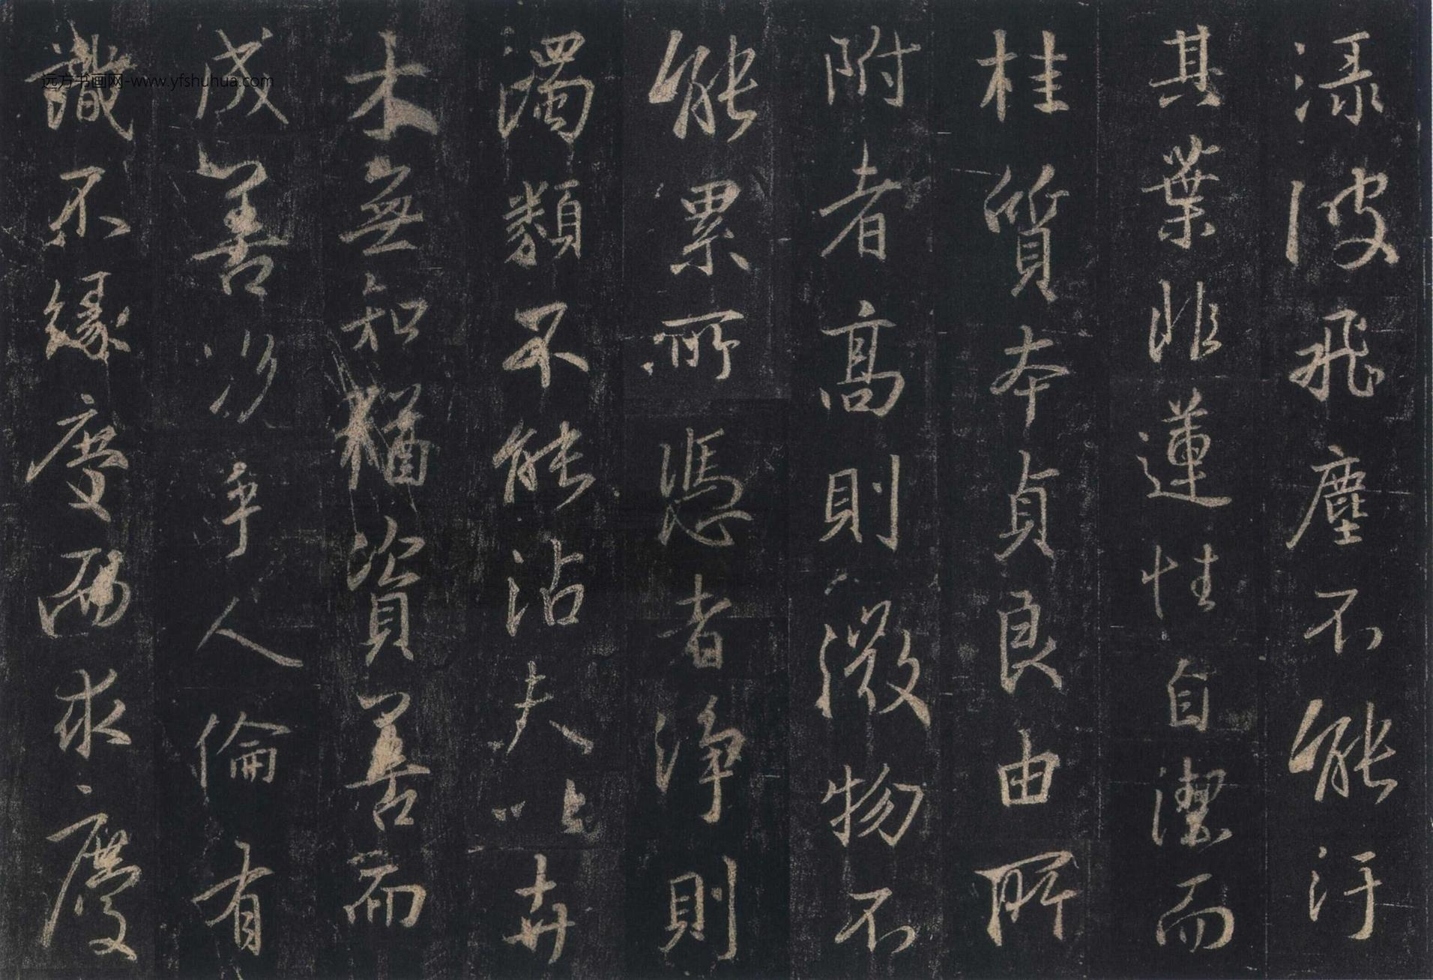 渌波飛塵不能汙
其葉非蓮性自潔而
桂質本貞良由所
附者高則微物不
能累所憑者淨則
濁類不能沾夫以卉
木無知猶資善而
成善況乎人倫有
識不緣慶而求慶
远方书画网-www.yfshuhua.com